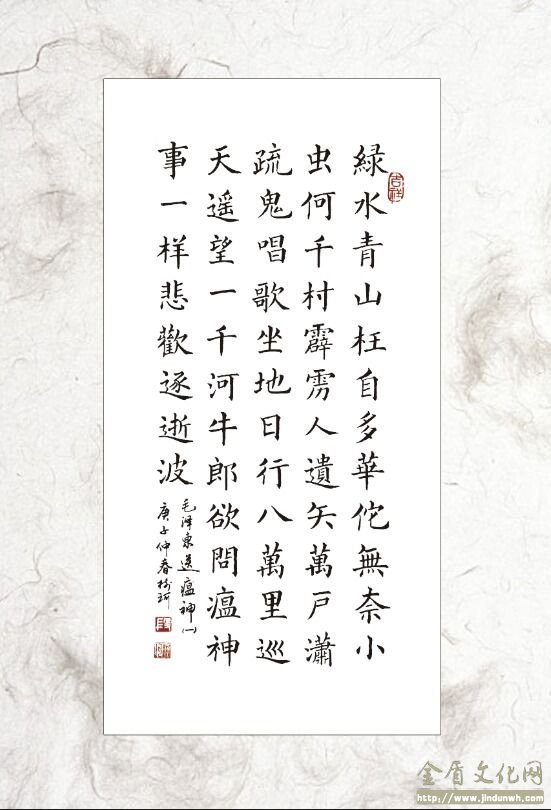 緑水青山枉自多華佗無奈小
虫何千村霹雳人遺矢萬户瀟
疏鬼唱歌坐地日行八萬里巡
天遥望一千河牛郎欲問瘟神
事一样悲歡逐逝波
毛泽東送瘟神(一)
庚子仲春
吉祥
金盾文化网
http://www.jindunwh.com